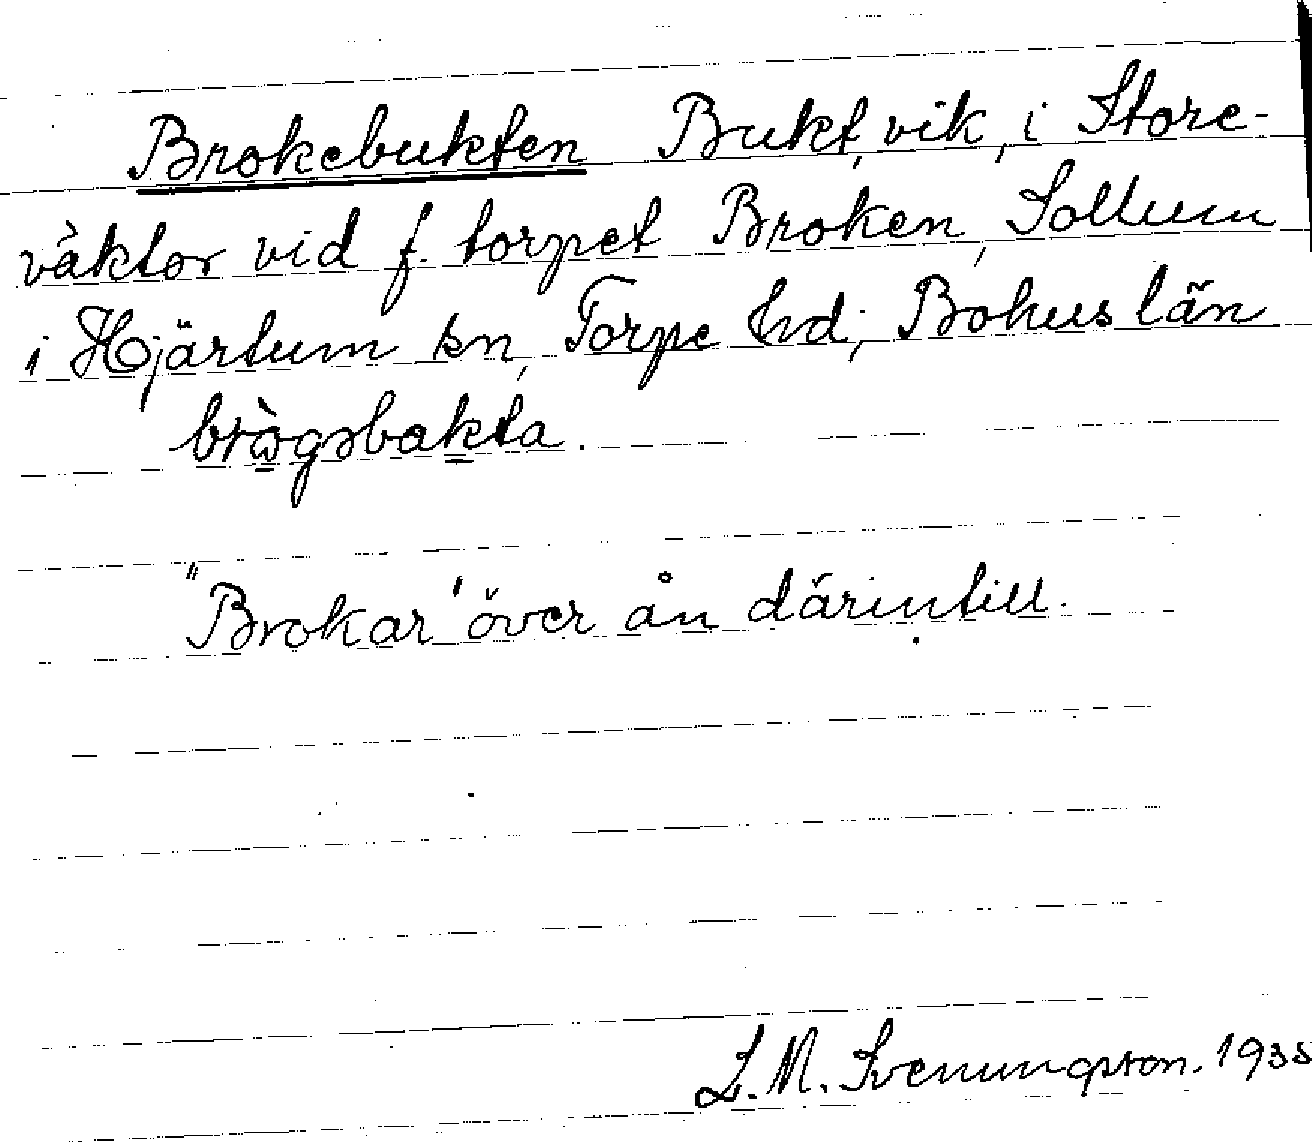 Brokebukten Bukt, vik, i Store-
väktor vid f. torpet Broken, Sollum
i Hjärtum sn, Torpe hd; Bohus län
brògsbakta.
"Brokar" över ån därintill.
L. M. Svenungsson. 1935